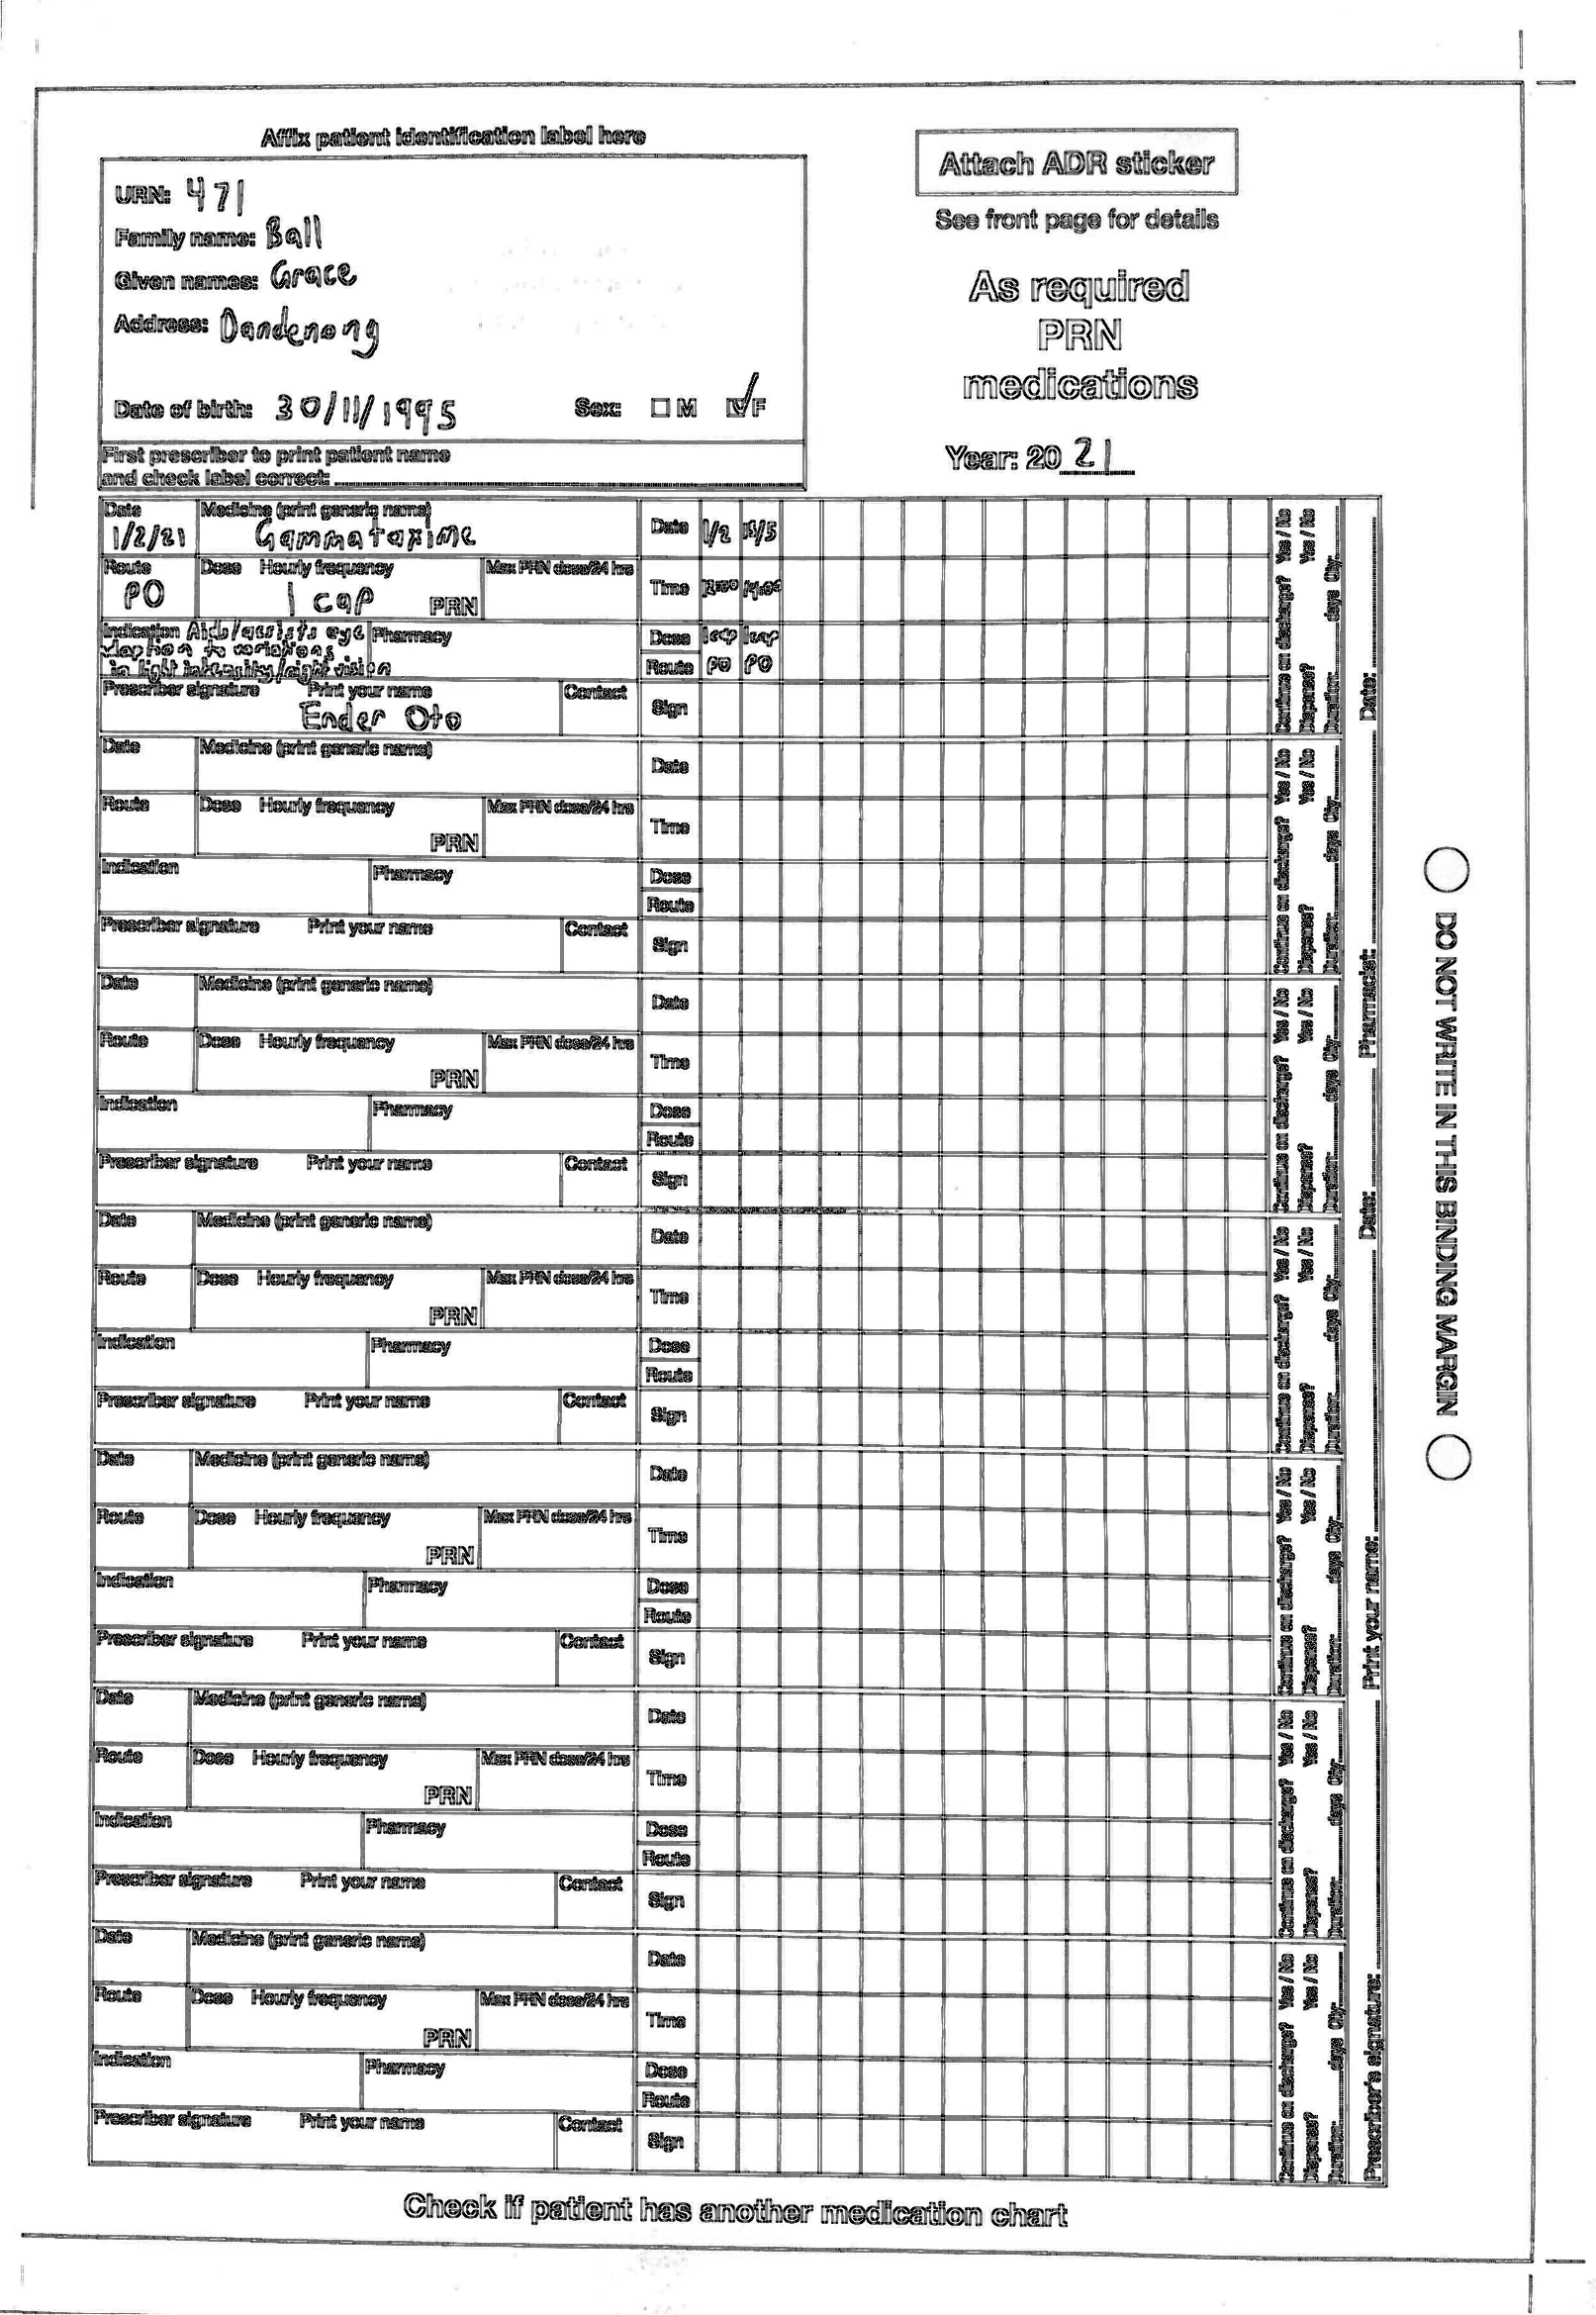 Affix patient identification label here
URN: 471
Family name: Ball
Given names: Grace
Address: Dandenong
Date of birth: 30/11/1995 Sex: M F
First prescriber to print patient name
and check label correct:
Attach ADR sticker
See front page for details
As required
PRN
medications
Year: 20 21
Date Medicine (print generic name)
1/2/21 Gammataxime
Route Dose Hourly frequency Max PRN dose/24 hrs
PO 1 cap PRN
Indication Aids/assists eye Pharmacy
to variations
in light intensity/night vision
Prescriber signature Print your name Contact
Ender Oto
Date 1/2
Time
Dose 1cap 1cap
Route PO PO
Sign
Continue on discharge? Yes / No
Dispense? Yes / No
Duration: days Qty:
Date Medicine (print generic name)
Route Dose Hourly frequency Max PRN dose/24 hrs
PRN
Indication Pharmacy
Prescriber signature Print your name Contact
Date
Time
Dose
Route
Sign
Continue on discharge? Yes / No
Dispense? Yes / No
Duration: days Qty:
Date Medicine (print generic name)
Route Dose Hourly frequency Max PRN dose/24 hrs
PRN
Indication Pharmacy
Prescriber signature Print your name Contact
Date
Time
Dose
Route
Sign
Continue on discharge? Yes / No
Dispense? Yes / No
Duration: days Qty:
Date Medicine (print generic name)
Route Dose Hourly frequency Max PRN dose/24 hrs
PRN
Indication Pharmacy
Prescriber signature Print your name Contact
Date
Time
Dose
Route
Sign
Continue on discharge? Yes / No
Dispense? Yes / No
Duration: days Qty:
Date Medicine (print generic name)
Route Dose Hourly frequency Max PRN dose/24 hrs
PRN
Indication Pharmacy
Prescriber signature Print your name Contact
Date
Time
Dose
Route
Sign
Continue on discharge? Yes / No
Dispense? Yes / No
Duration: days Qty:
Date Medicine (print generic name)
Route Dose Hourly frequency Max PRN dose/24 hrs
PRN
Indication Pharmacy
Prescriber signature Print your name Contact
Date
Time
Dose
Route
Sign
Continue on discharge? Yes / No
Dispense? Yes / No
Duration: days Qty:
Date Medicine (print generic name)
Route Dose Hourly frequency Max PRN dose/24 hrs
PRN
Indication Pharmacy
Prescriber signature Print your name Contact
Date
Time
Dose
Route
Sign
Continue on discharge? Yes / No
Dispense? Yes / No
Duration: days Qty:
Prescriber's signature: Print your name: Date: Pharmacist: Date:
DO NOT WRITE IN THIS BINDING MARGIN
Check if patient has another medication chart